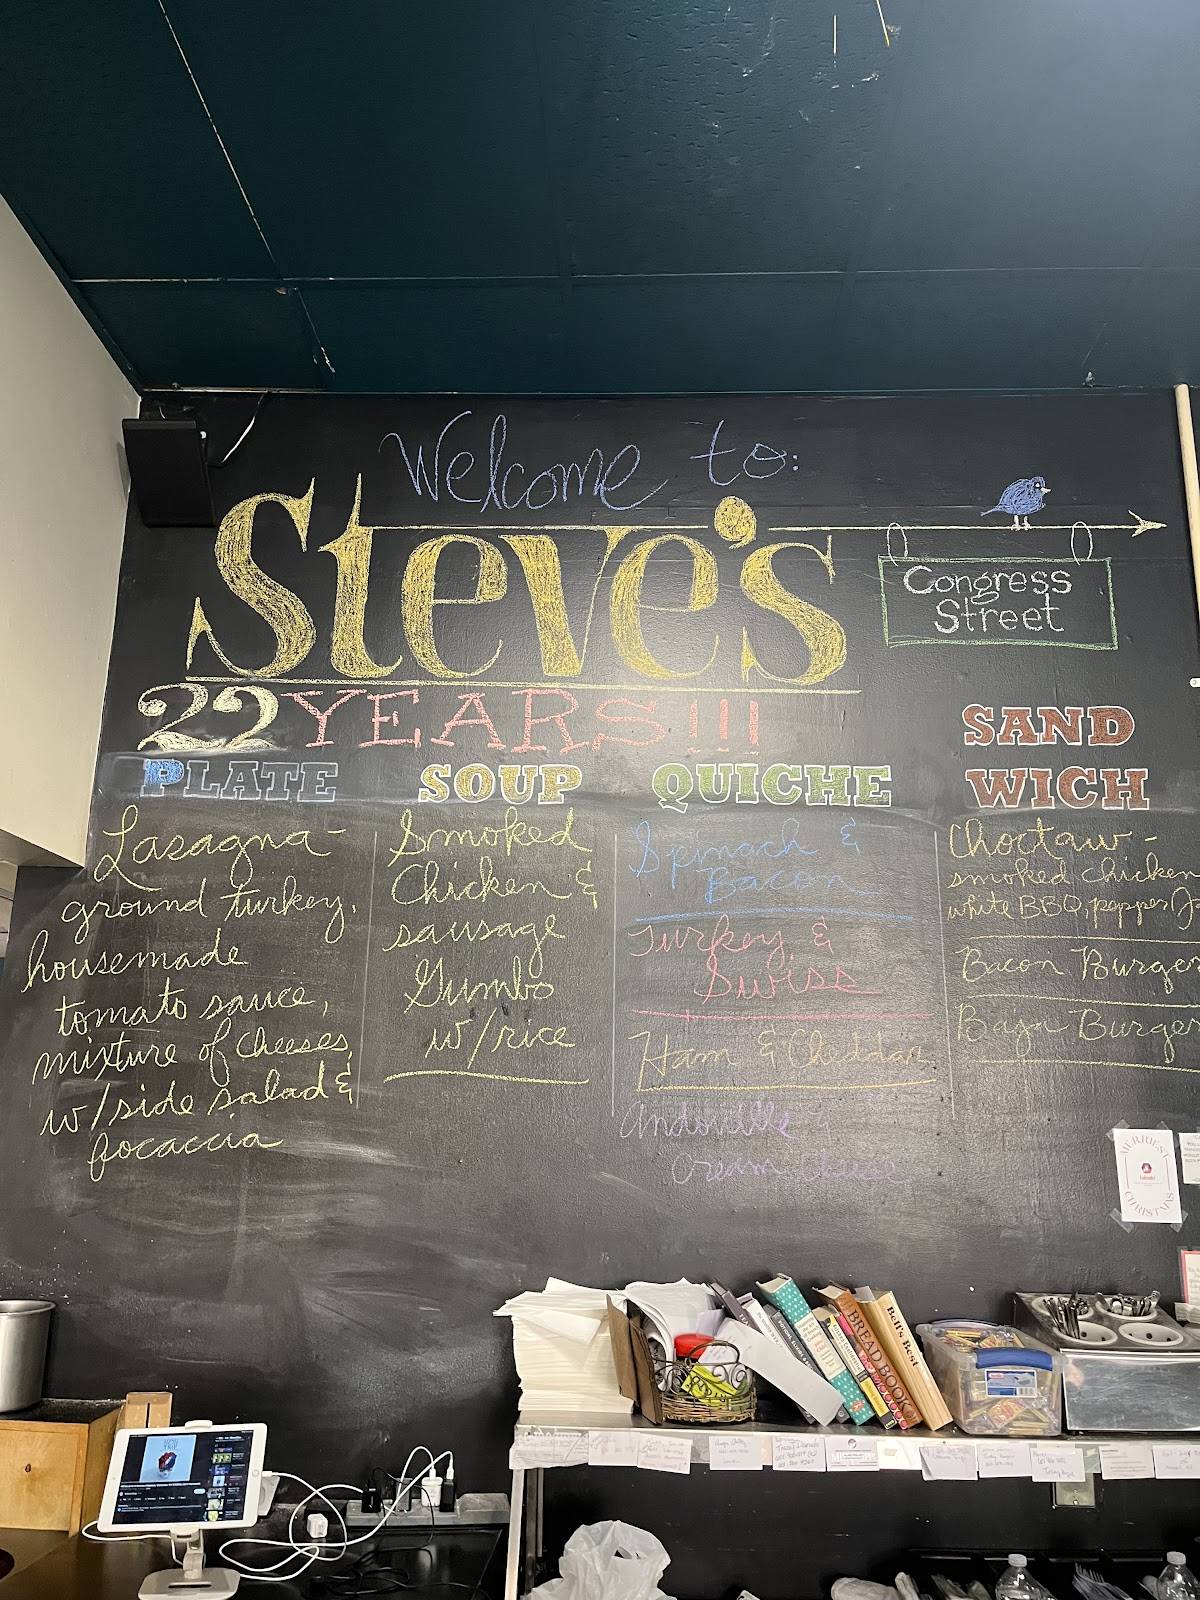 Welcome to:
Steve's
Congress
Street
22 YEARS!!!
PLATE
Lasagna-
ground turkey,
housemade
tomato sauce,
mixture of cheeses,
w/side salad &
focaccia
SOUP
Smoked
Chicken &
sausage
Gumbo
w/rice
QUICHE
Spinach &
Bacon
Turkey &
Swiss
Ham & Cheddar
Andouille
cream cheese
SAND
WICH
Choctaw-
smoked chicken
white BBQ, pepper
Bacon Burger
Baja Burger
MERRIEST
CHRISTMAS
BREAD BOOK
Bell's Best